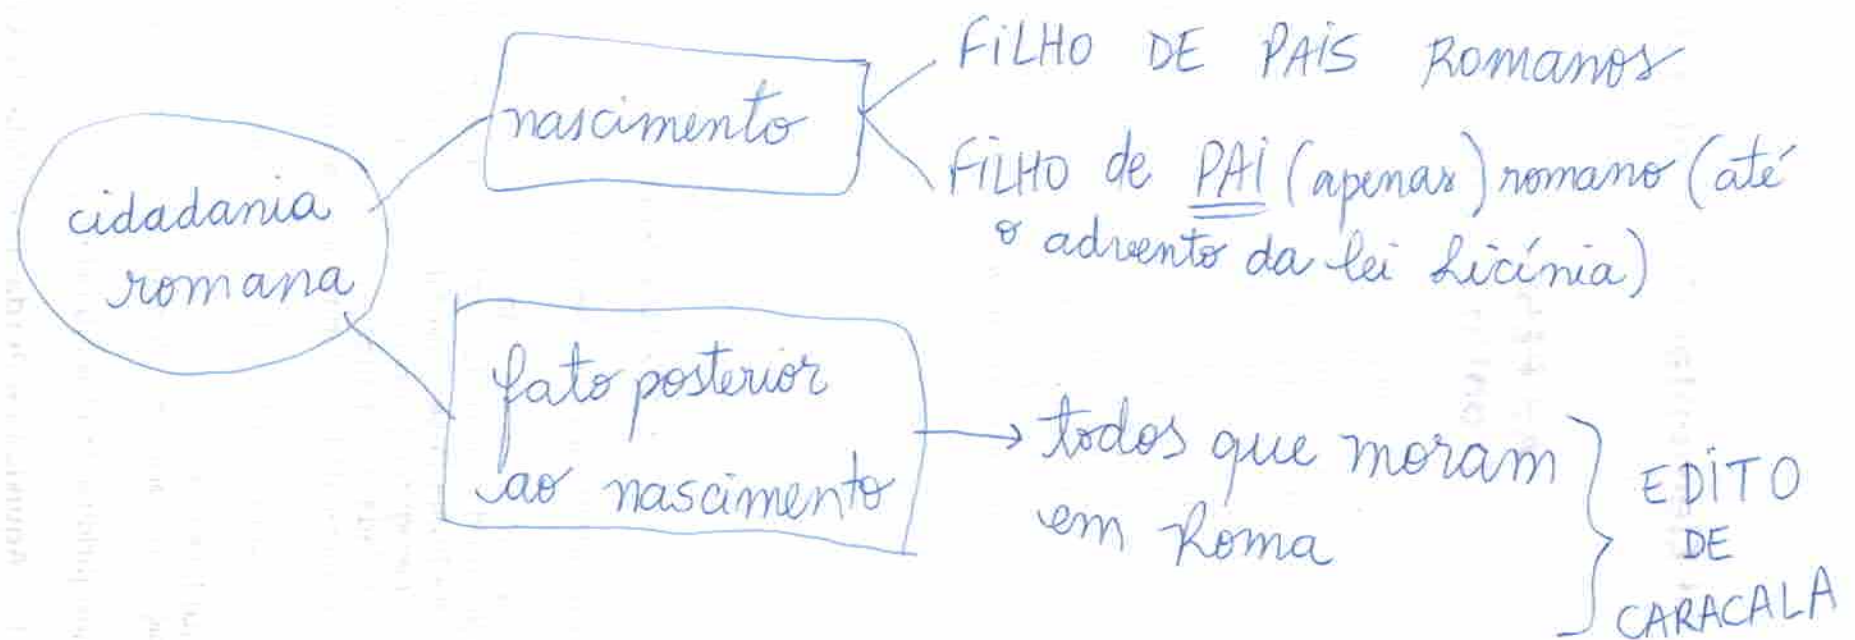 cidadania
romana
nascimento
FILHO DE PAIS ROMANOS
FILHO de PAI (apenas) romano (até
o advento da lei Licínia)
fato posterior
ao nascimento
todos que moram
em Roma
EDITO
DE
CARACALA